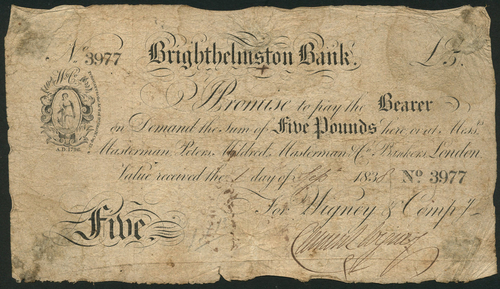 No. 3977 Brighthelmston Bank. £5.
I Promise to pay the Bearer
on Demand the Sum of Five Pounds here or at Messrs.
Masterman, Peters, Mildred, Masterman, & Co. Bankers, London
Value received the 1 day of Sept. 183 No 3977
For Wigney & Compy.
Five.